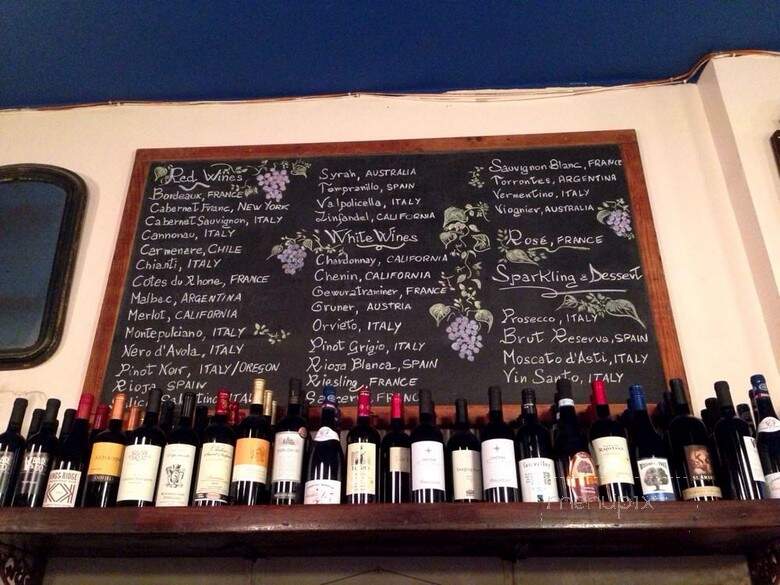 Red Wines
Bordeaux, FRANCE
Cabernet Franc, NEW YORK
Cabernet Sauvignon, ITALY
Cannonau, ITALY
Carmenere, CHILE
Chianti, ITALY
Cotes du Rhone, FRANCE
Malbec, ARGENTINA
Merlot, CALIFORNIA
Montepulciano, ITALY
Nero d'Avola, ITALY
Pinot Noir, ITALY/OREGON
Rioja, SPAIN
Syrah, AUSTRALIA
Tempranillo, SPAIN
Valpolicella, ITALY
Zinfandel, CALIFORNIA
White Wines
Chardonnay, CALIFORNIA
Chenin, CALIFORNIA
Gewurztraminer, FRANCE
Gruner, AUSTRIA
Orvieto, ITALY
Pinot Grigio, ITALY
Rioja Blanca, SPAIN
Riesling, FRANCE
Sancerre, FRANCE
Sauvignon Blanc, FRANCE
Torrontes, ARGENTINA
Vermentino, ITALY
Viognier, AUSTRALIA
Rosé, FRANCE
Sparkling & Dessert
Prosecco, ITALY
Brut Reserva, SPAIN
Moscato d'Asti, ITALY
Vin Santo, ITALY
KINGS RIDGE
menupix